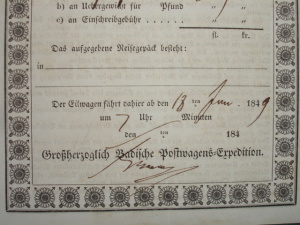 b) an Uebergewicht für Pfund „ „
c) an Einschreibgebühr . . . . „ „
fl. kr.
Das aufgegebene Reisegepäck besteht:
in
Der Eilwagen fährt dahier ab den 18 ten Jun. 1849
um 7 Uhr Minuten
den ten 184
Großherzoglich Badische Postwagens-Expedition.